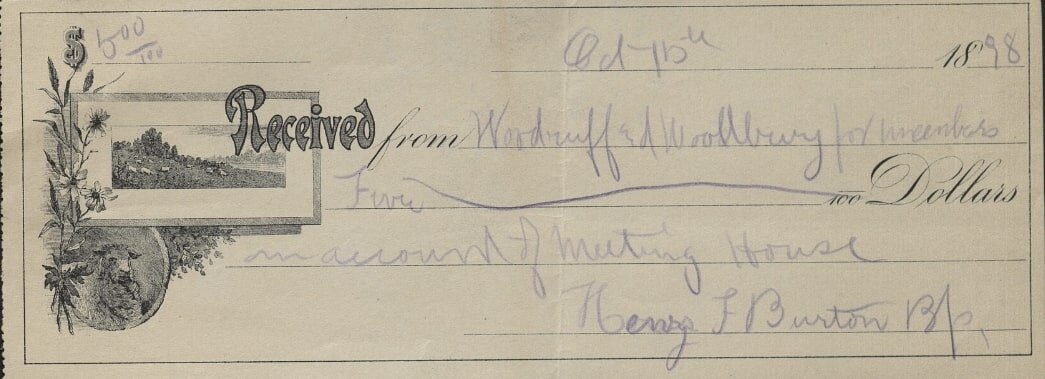 $ 5 00/100
Oct 15th 1898
Received from Woodruff & Woodbury for members
Five /100 Dollars
on account of Meeting House
Henry F Burton Bp.